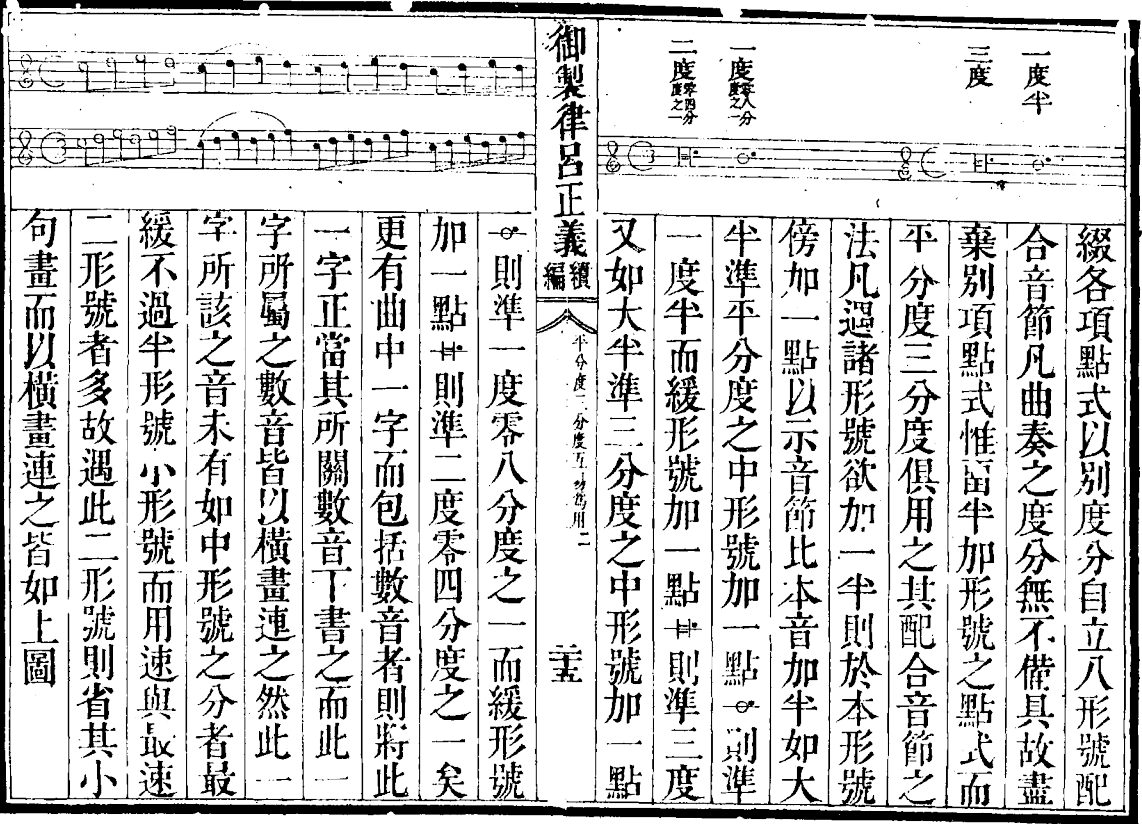 一度半
三度
一度零八分度之一
二度零四分度之一
綴各項點式以別度分自立八形號配
合音節凡曲奏之度分無不備具故盡
棄別項點式惟畱半加形號之點式而
平分度三分度俱用之其配合音節之
法凡遇諸形號欲加一半則於本形號
傍加一點以示音節比本音加半如大
半準平分度之中形號加一點則準
一度半而緩形號加一點則準三度
又如大半準三分度之中形號加一點
御製律呂正義續編
分度三分度互用二
二十五
則準一度零八分度之一而緩形號
加一點則準二度零四分度之一矣
更有曲中一字而包括數音者則將此
一字正當其所關數音下書之而此一
字所屬之數音皆以橫畫連之然此一
字所該之音未有如中形號之分者最
緩不過半形號小形號而用速與最速
二形號者多故遇此二形號則省其小
句畫而以橫畫連之皆如上圖